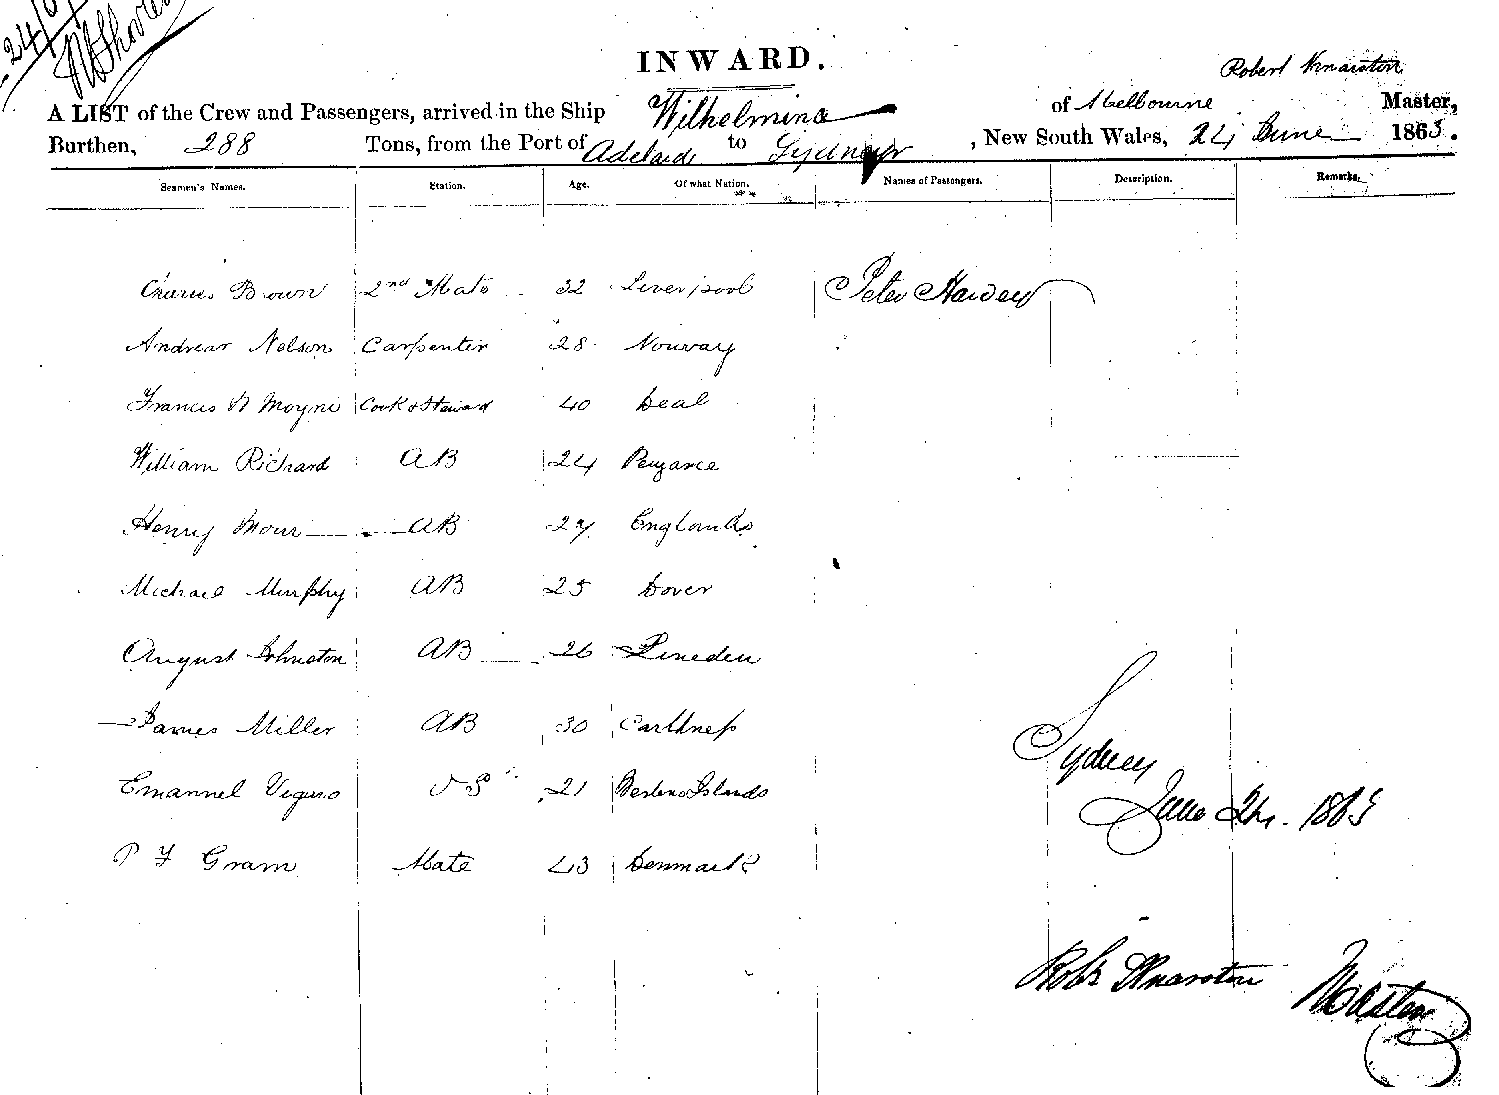 24/6
INWARD.
Robert Knarston
A LIST of the Crew and Passengers, arrived in the Ship Wilhelmina of Melbourne Master,
Burthen, 288 Tons, from the Port of Adelaide to Sydney, New South Wales, 24 June 1865.
Seamen's Names. Station. Age. Of what Nation. Names of Passengers. Description. Remarks.
Charles Brown 2nd Mate 32 Liverpool Peter Harvey
Andrew Nelson Carpenter 28 Norway
Francis Moyne Cook & Steward 40 Deal
William Richard AB 24 Penzance
Henry Mour AB 27 England
Michael Murphy AB 25 Dover
August Johnston AB 26
James Miller AB 30 Caithness
Emanuel OS 21 Islands
P F Gram Mate 43 Denmark
Sydney
June 24. 1865
Robt Knarston Master